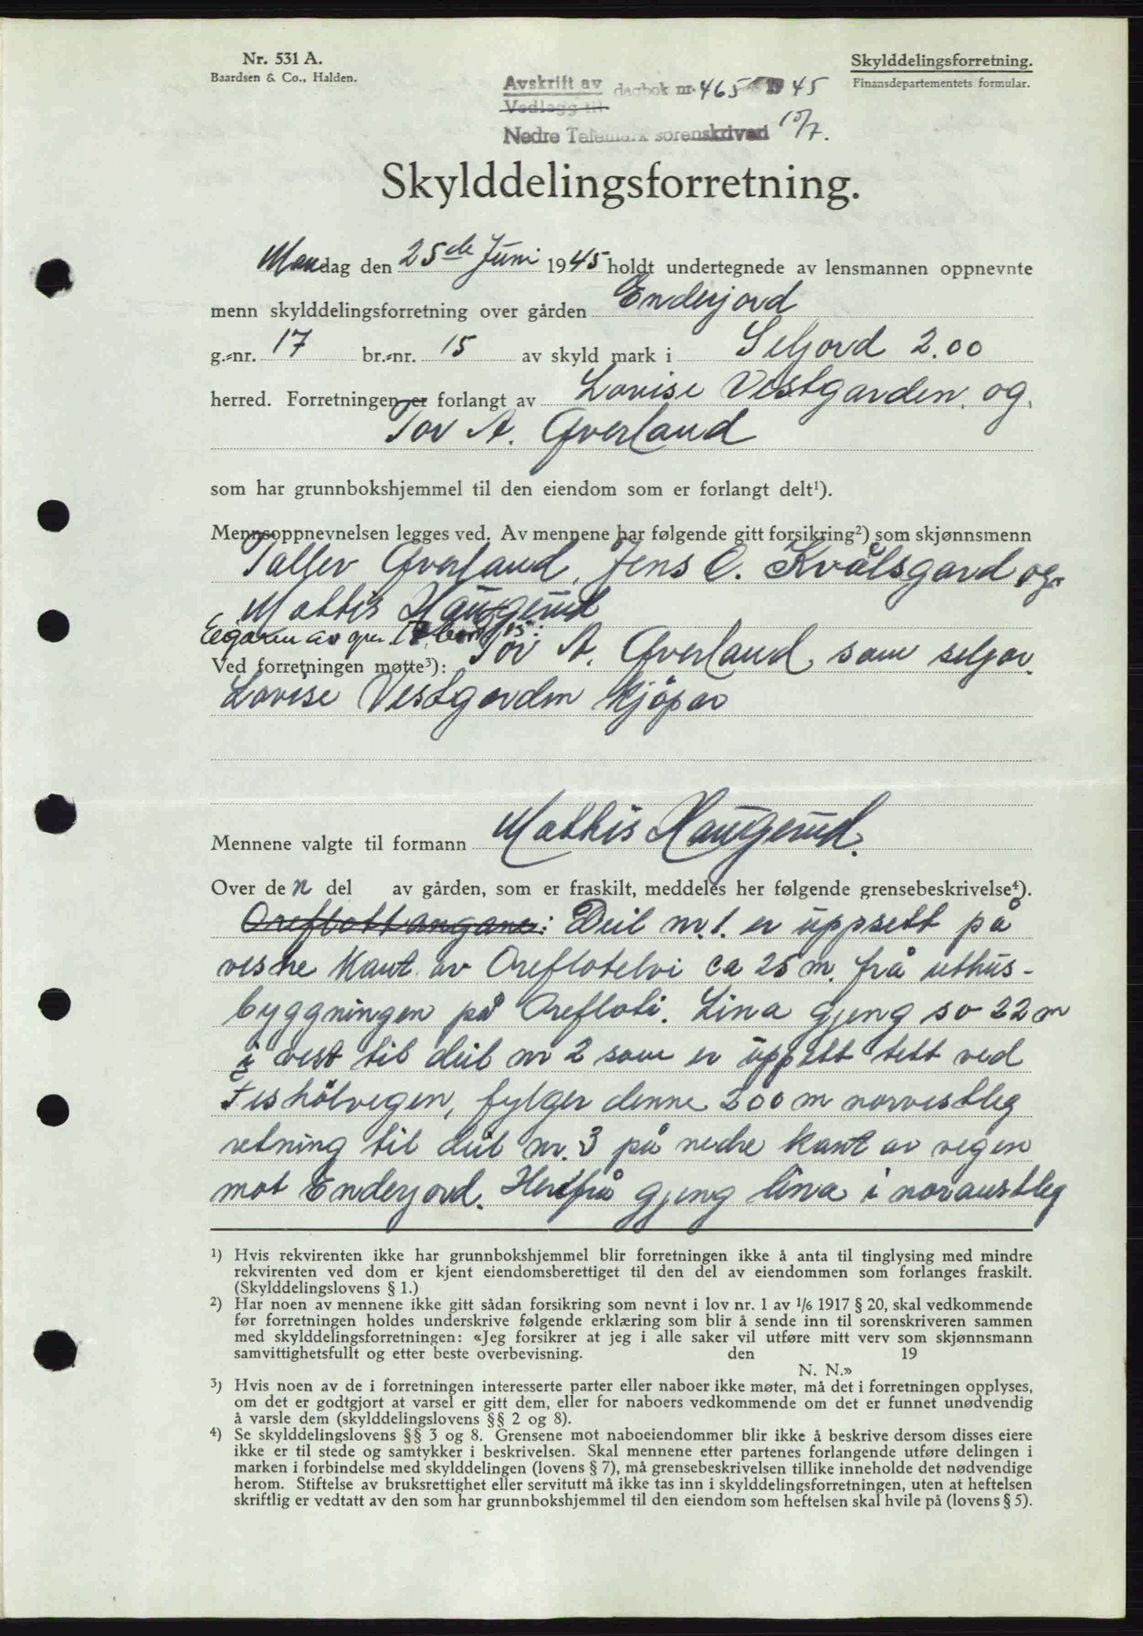 Nr. 531 A.
Baardsen & Co., Halden.
Skylddelingsforretning.
Finansdepartementets formular.
Avskrift av dagbok nr. 465 1945
Vedlegg til
Nedre Telemark sorenskriveri 10/7.
Skylddelingsforretning.
Mandag den 25de Juni 1945 holdt undertegnede av lensmannen oppnevnte
menn skylddelingsforretning over gården Enderjord
g.-nr. 17 br.-nr. 15 av skyld mark i Seljord 2.00
herred. Forretningen er forlangt av Lovise Vestgarden og
Tov A. Øverland
som har grunnbokshjemmel til den eiendom som er forlangt delt¹).
Mennsoppnevnelsen legges ved. Av mennene har følgende gitt forsikring²) som skjønnsmenn
Tallev Øverland, Jens O. Kvålsgard og
Mathis Haugerud
Eigaren av gnr. 17 bnr. 15:
Ved forretningen møtte³): Tov A. Øverland som seljar
Lovise Vestgarden kjöpar
Mennene valgte til formann Mathis Haugerud.
Over den del av gården, som er fraskilt, meddeles her følgende grensebeskrivelse⁴).
Oreflottangane: Deil nr. 1. er uppsett på
vestre kant av Oreflotelvi ca 25 m. frå uthus-
byggningen på Orefloti. Lina gjeng so 22 m
i vest til deil nr 2 som er uppsett tett ved
Fishölvegen, fylger denne 200 m norvestleg
retning til deil nr. 3 på nedre kant av vegen
mot Enderjord. Herifrå gjeng lina i noraustleg
¹) Hvis rekvirenten ikke har grunnbokshjemmel blir forretningen ikke å anta til tinglysing med mindre
rekvirenten ved dom er kjent eiendomsberettiget til den del av eiendommen som forlanges fraskilt.
(Skylddelingslovens § 1.)
²) Har noen av mennene ikke gitt sådan forsikring som nevnt i lov nr. 1 av 1/6 1917 § 20, skal vedkommende
før forretningen holdes underskrive følgende erklæring som blir å sende inn til sorenskriveren sammen
med skylddelingsforretningen: «Jeg forsikrer at jeg i alle saker vil utføre mitt verv som skjønnsmann
samvittighetsfullt og etter beste overbevisning. den 19
N. N.»
³) Hvis noen av de i forretningen interesserte parter eller naboer ikke møter, må det i forretningen opplyses,
om det er godtgjort at varsel er gitt dem, eller for naboers vedkommende om det er funnet unødvendig
å varsle dem (skylddelingslovens §§ 2 og 8).
⁴) Se skylddelingslovens §§ 3 og 8. Grensene mot naboeiendommer blir ikke å beskrive dersom disses eiere
ikke er til stede og samtykker i beskrivelsen. Skal mennene etter partenes forlangende utføre delingen i
marken i forbindelse med skylddelingen (lovens § 7), må grensebeskrivelsen tillike inneholde det nødvendige
herom. Stiftelse av bruksrettighet eller servitutt må ikke tas inn i skylddelingsforretningen, uten at heftelsen
skriftlig er vedtatt av den som har grunnbokshjemmel til den eiendom som heftelsen skal hvile på (lovens § 5).